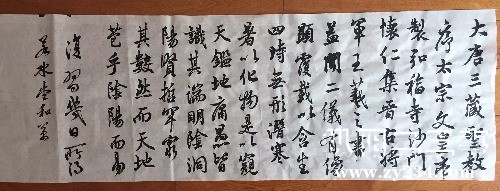 大唐三藏聖教
序太宗文皇帝
製弘福寺沙門
懷仁集晉右將
軍王羲之書
蓋聞二儀有像
顯覆載以含生
四時無形潛寒
暑以化物是以窺
天鑑地庸愚皆
識其端明陰洞
陽賢哲罕窮
其數然而天地
苞乎陰陽而易
復習幾日所得